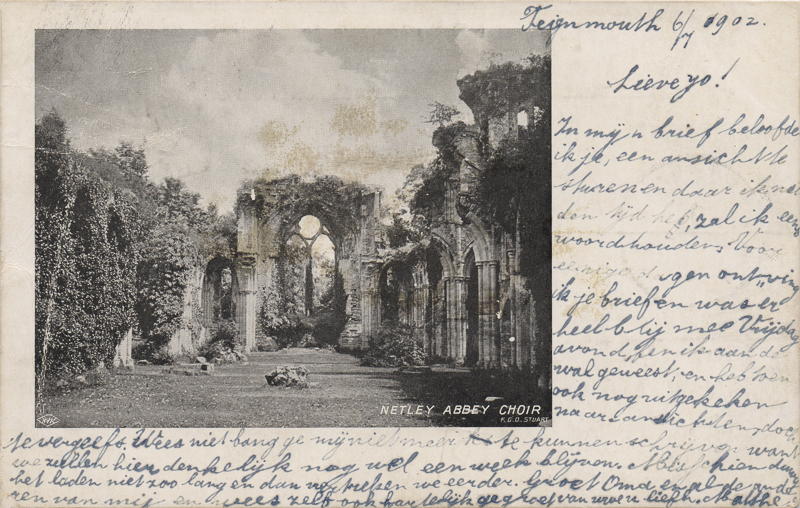 Teignmouth 6/7 1902.
Lieve Jo!
In mijn brief beloofde
ik je, een ansicht te
sturen en daar ik nou
den tijd heb, zal ik eens
woordhouden. Voor
eenige dagen ontving
ik je brief en was er
heel blij mee Vrijdag
avond, ben ik aan de
wal geweest, en heb toen
ook nog uitgekeken
naar ansichten, doch
NETLEY ABBEY CHOIR
F.G.O. STUART
te vergeefs. Wees niet bang je mij niet meer te kunnen schrijven want
we zullen hier denkelijk nog wel een week blijven. Misschien duurt
het laden niet zoo lang en dan vertrekken we eerder. Groet Oma en al de ande
ren van mij en wees zelf ook hartelijk gegroet van uwe u liefh.